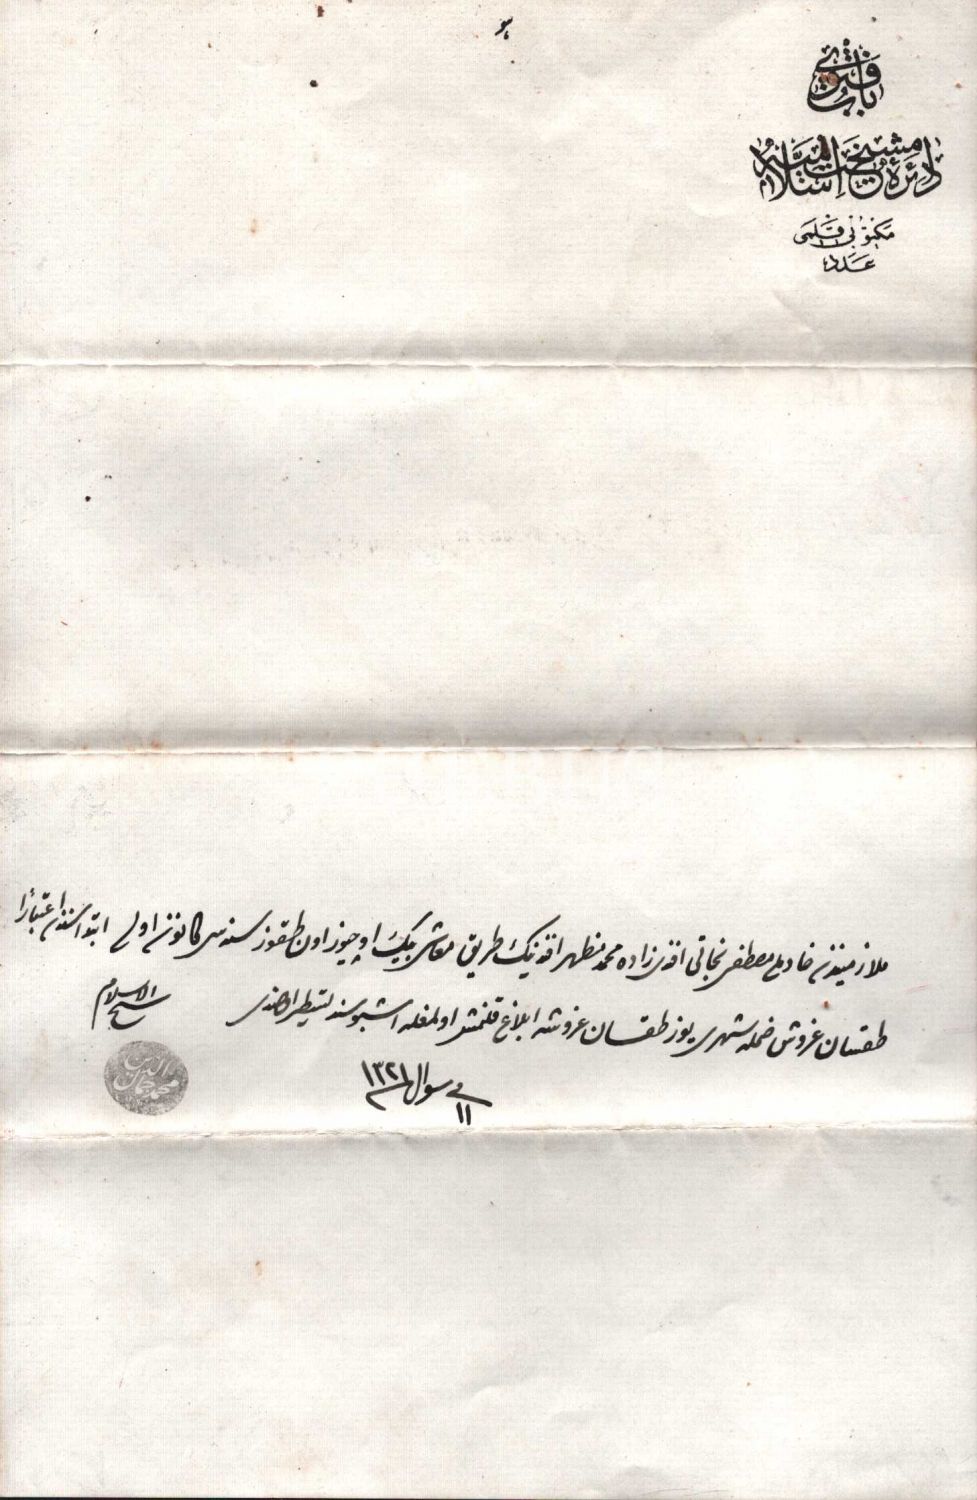 هو
باب فتوى
دائرهٔ مشيخت اسلاميه
مكتوبى قلمى
عدد
ملازميندن مصطفى نجاتى افندى زاده محمد مظهر افندينك طريق معاشى بيك اوچيوز اون طقوز سنه سى كانون اولى ابتداسندن اعتبارًا
طقسان غروش ضمله شهرى يوز طقسان غروشه ابلاغ قلنمش اولمغله اشبو سند تسطير اولندى
شيخ الاسلام
محمد جمال الدين
فى ١١ شوال سنه ١٣٢١